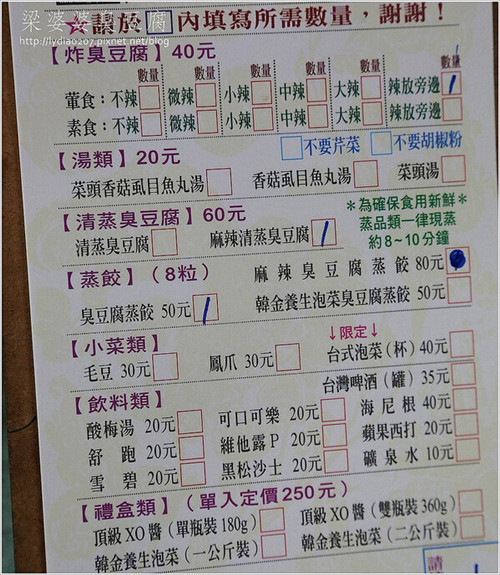 梁婆婆臭豆腐
http://lydiao207.pixnet.net/blog
☆請於□內填寫所需數量，謝謝！
【炸臭豆腐】40元
數量 數量 數量 數量 數量 數量
葷食：不辣 微辣 小辣 中辣 大辣 辣放旁邊
素食：不辣 微辣 小辣 中辣 大辣 辣放旁邊
不要芹菜 不要胡椒粉
【湯類】20元
菜頭香菇虱目魚丸湯 香菇虱目魚丸湯 菜頭湯
【清蒸臭豆腐】60元
清蒸臭豆腐 麻辣清蒸臭豆腐
＊為確保食用新鮮＊
蒸品類一律現蒸
約8~10分鐘
【蒸餃】(8粒) 麻辣臭豆腐蒸餃 80元
臭豆腐蒸餃 50元 韓金養生泡菜臭豆腐蒸餃 50元
【小菜類】 ↓限定↓
毛豆 30元 鳳爪 30元 台式泡菜(杯) 40元
【飲料類】 台灣啤酒(罐) 35元
酸梅湯 20元 可口可樂 20元 海尼根 40元
舒跑 20元 維他露P 20元 蘋果西打 20元
雪碧 20元 黑松沙士 20元 礦泉水 10元
【禮盒類】(單入定價250元)
頂級XO醬(單瓶裝180g) 頂級XO醬(雙瓶裝360g)
韓金養生泡菜(一公斤裝) 韓金養生泡菜(二公斤裝)
請